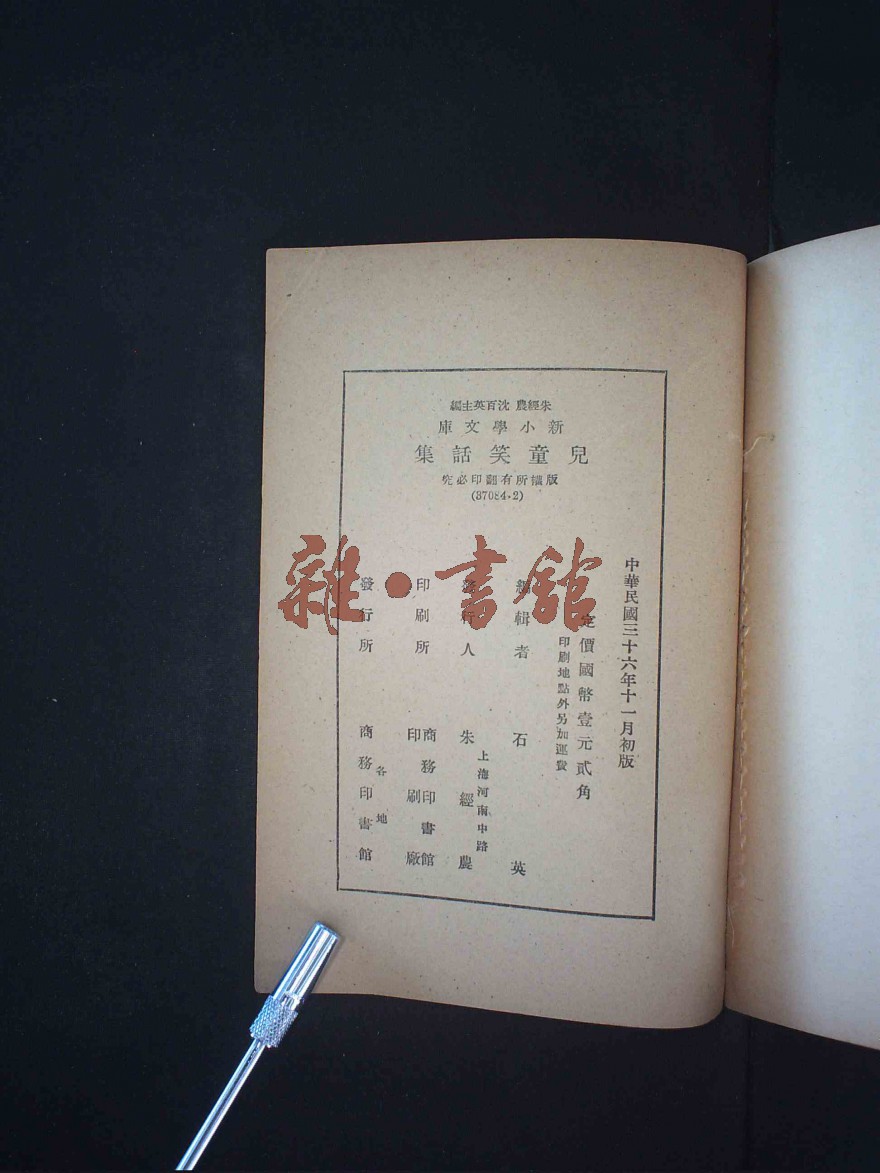 朱經農 沈百英主編
新小學文庫
兒童笑話集
版權所有翻印必究
(37084·2)
中華民國三十六年十一月初版
定價國幣壹元貳角
印刷地點外另加運費
編輯者 石英
發行人 朱經農
上海河南中路
印刷所 商務印書館印刷廠
發行所 商務印書館
各地
雜·書館